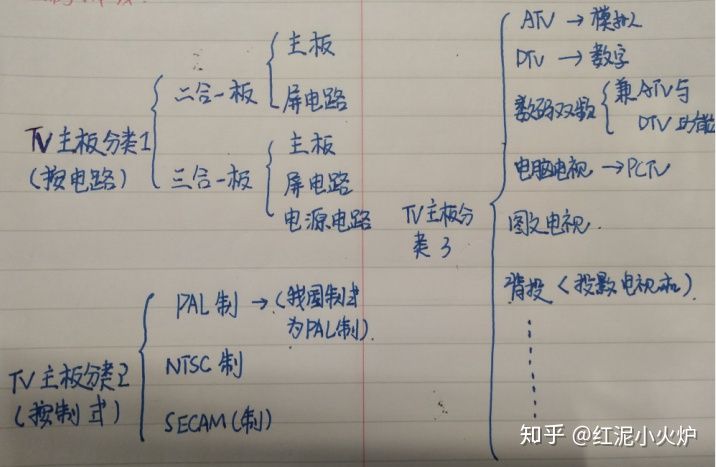 TV主板分类1
(按电路)
二合一板
主板
屏电路
三合一板
主板
屏电路
电源电路
TV主板分类2
(按制式)
PAL制 → (我国制式
为PAL制)
NTSC制
SECAM(制)
TV主板分
类3
ATV → 模拟
DTV → 数字
数码双数
兼ATV与
DTV功能
电脑电视 → PCTV
图文电视
背投(投影电视机)
知乎 @红泥小火炉